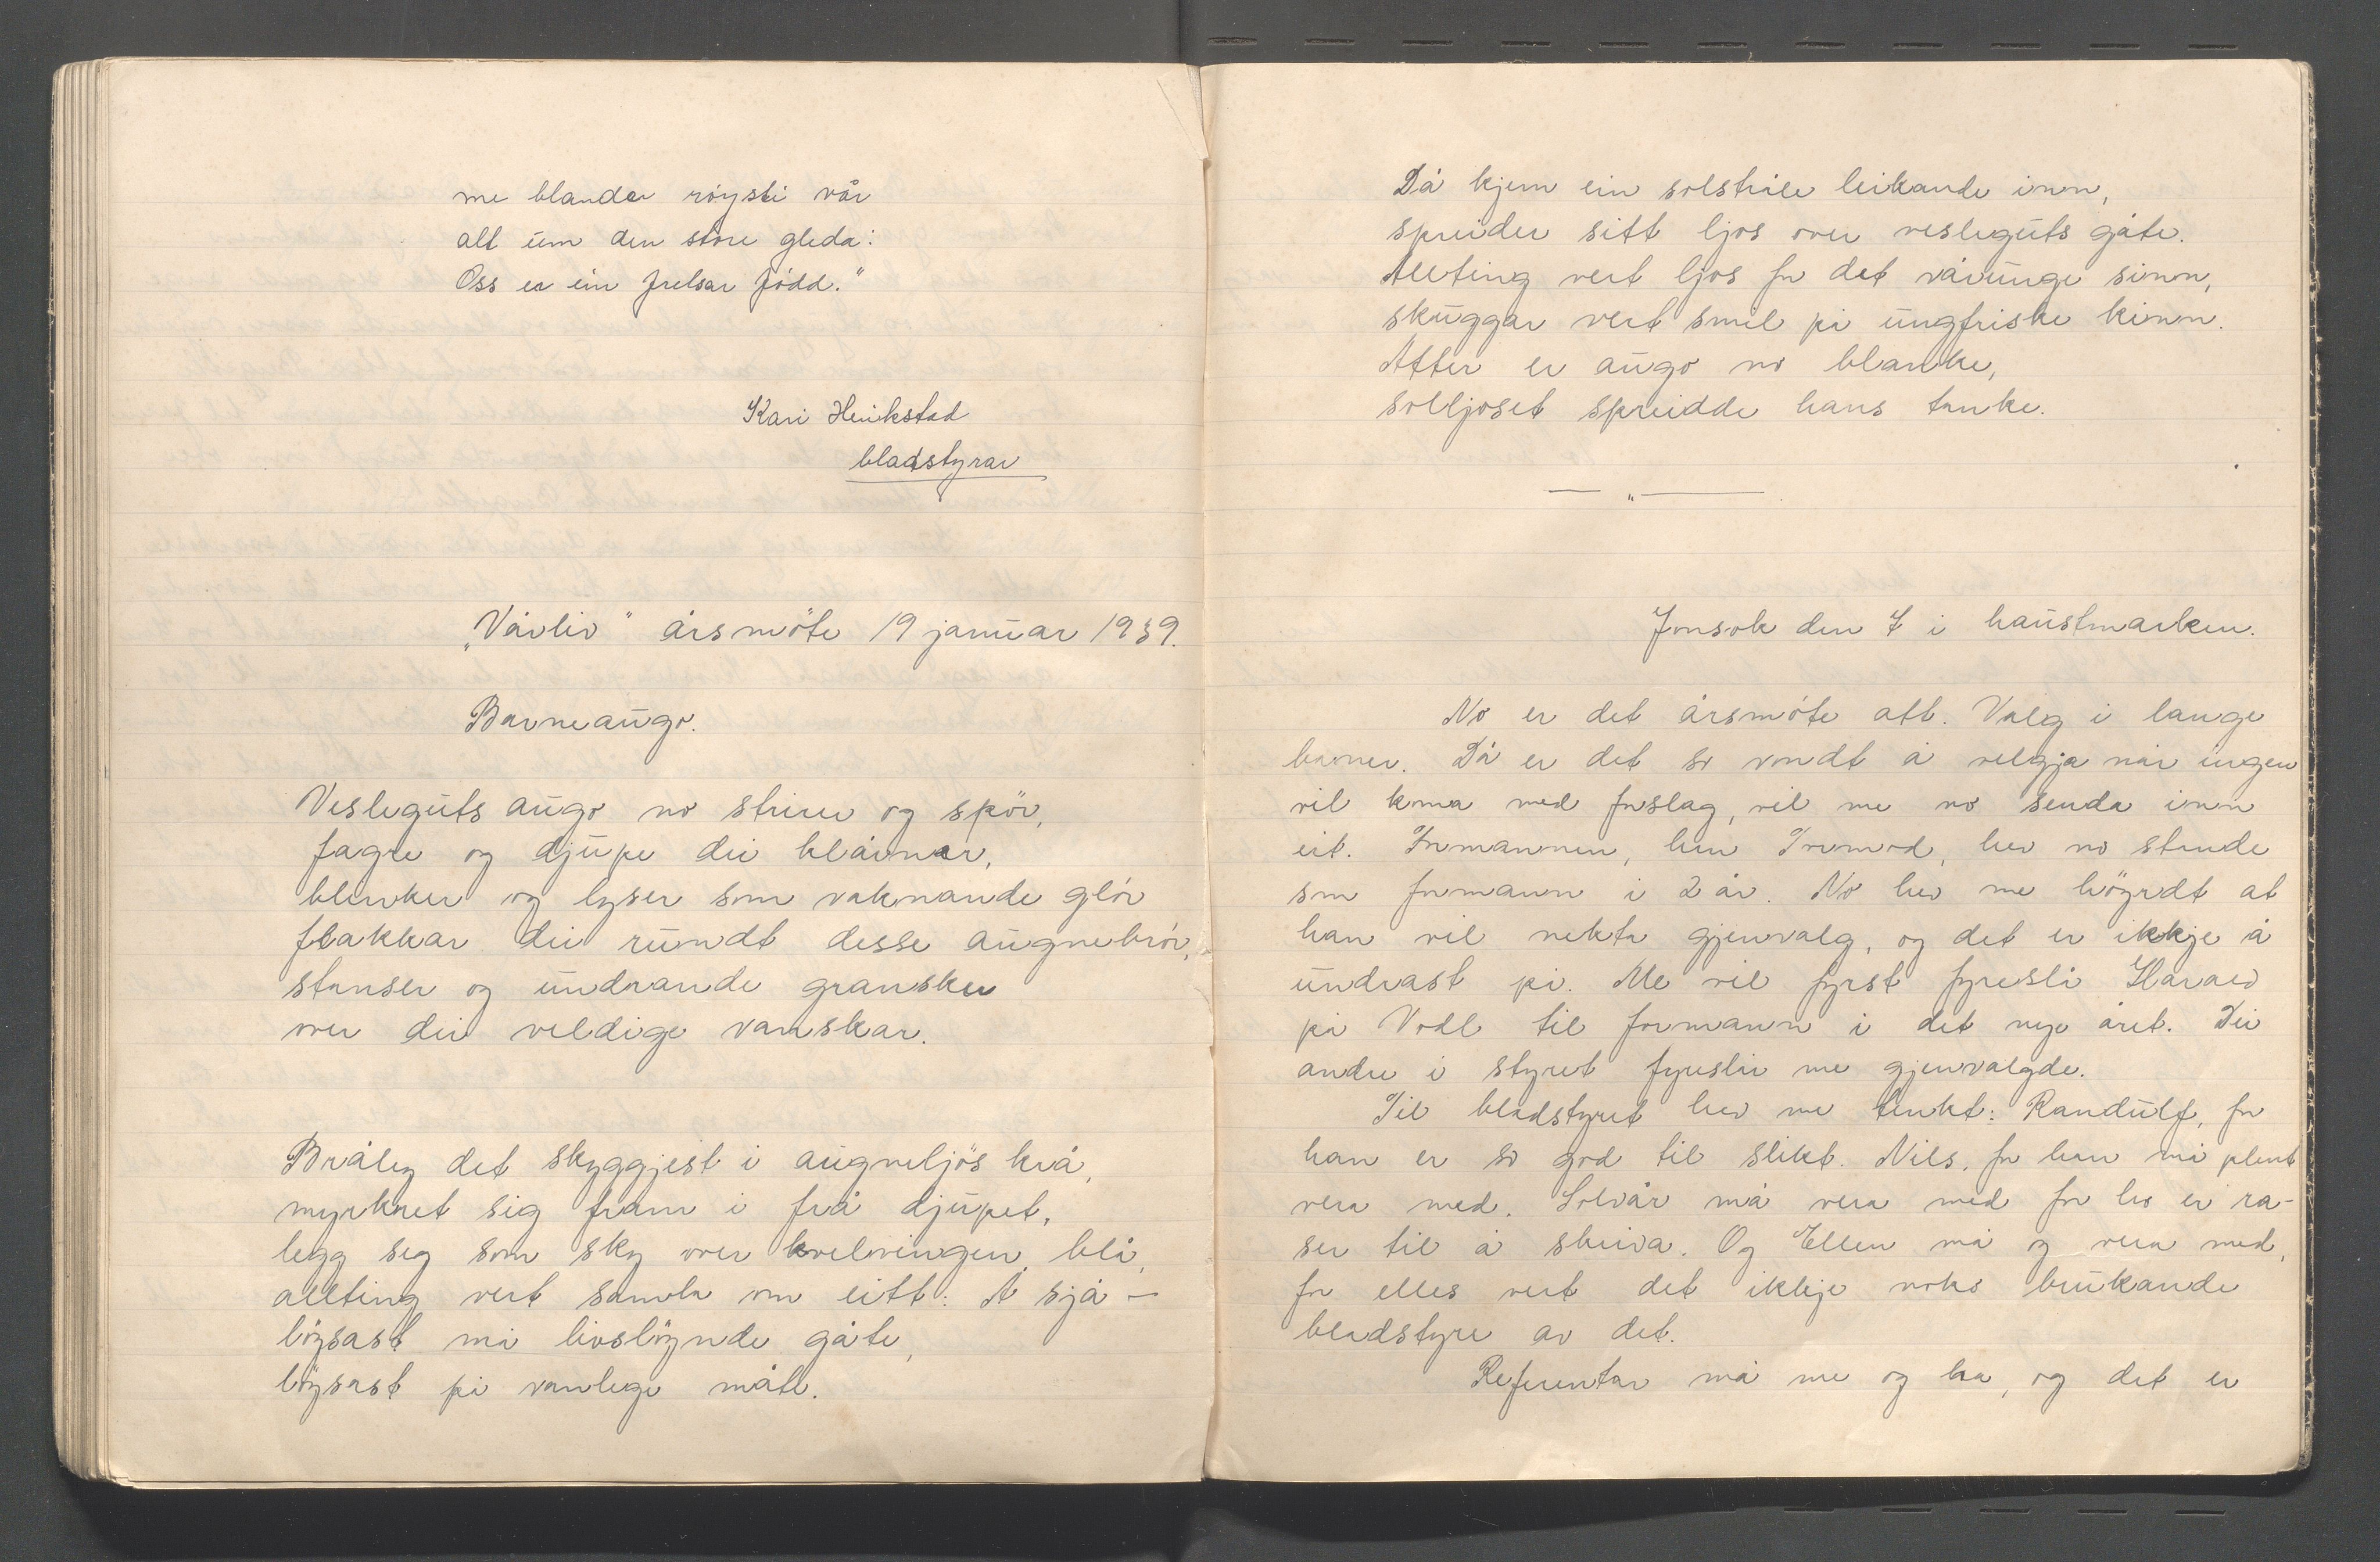 me blandar røysti vår
alt um den store gleda:
Oss er ein frelsar fødd."
Kari Henikstad
bladstyrar
"Vårliv" årsmøte 19 januar 1939.
Barneaugo.
Vesleguts augo no stirer og spør,
fagre og djupe dei blåvnar,
blinker og lyser som vaknande glør
flakkar dei rundt desse augnebrør,
stanser og undrande gransker
over dei veldige vanskar.
Bråleg det skyggjest i augneljøs krå,
myrkret sig fram i frå djupet,
legg seg som sky over kvelvingen blå,
allting vert samla om eitt: Å sjå –
løysast må livsløynde gåte,
løysast på vanlege måte.
Då kjem ein solstråle leikande inn,
spreider sitt ljos over vesleguts gåte.
Allting vert ljos for det vårunge sinn,
skuggar vert smil på ungfriske kinn.
Atter er augo no blanke,
solljoset spreidde hans tanke.
— " —
Jonsok den 7 i haustmarken.
No er det årsmøte att. Valg i lange
baner. Då er det so vondt å velgja når ingen
vil koma med forslag, vil me no senda inn
eit. Formannen, han Tormod, hev no stande
som formann i 2 år. No hev me høyrdt at
han vil nekta gjenvalg, og det er ikkje å
undrast på. Me vil fyrst fyreslå Harald
på Vodl til formann i det nye året. Dei
andre i styret fyreslår me gjenvalgde.
Til bladstyret hev me tenkt: Randulf, for
han er so god til slikt. Nils, for han må plent
vera med. Solvår må vera med for ho er ra-
ser til å skriva. Og Ellen må og vera med,
for elles vert det ikkje noko brukande
bladstyre av det.
Referentar må me og ha, og det er